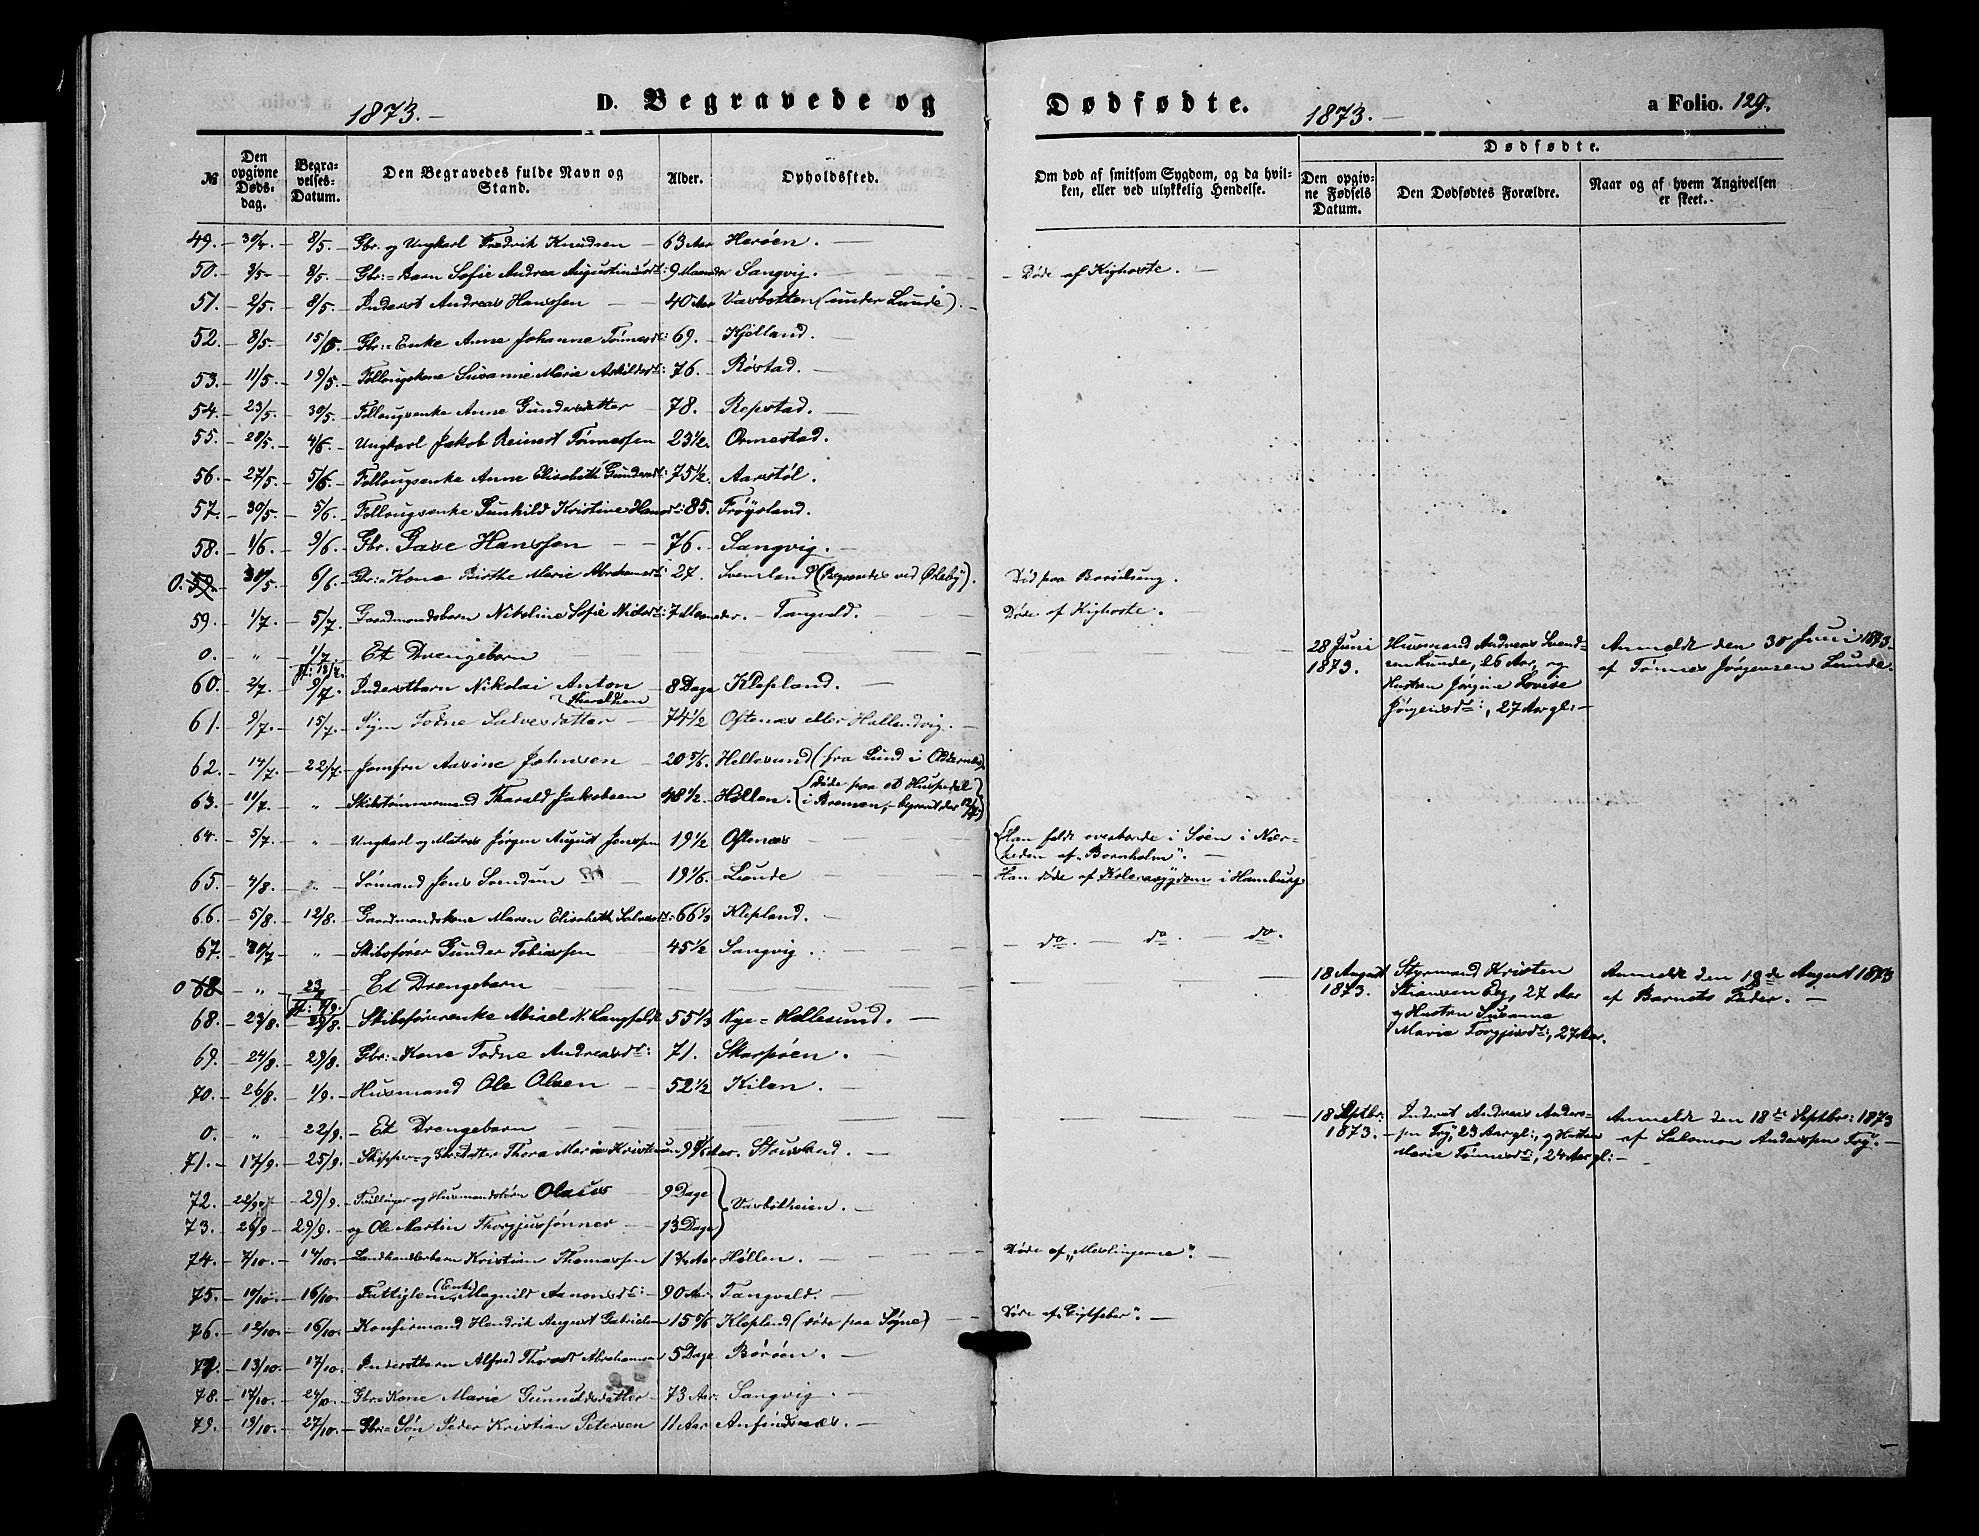 1873.-
D. Begravede og
Dødfødte.
1873.-
a Folio. 129.
№
Den opgivne Døds-dag.
Begra-velses-Datum.
Den Begravedes fulde Navn og Stand.
Alder.
Opholdssted.
Om død af smitsom Sygdom, og da hvil-ken, eller ved ulykkelig Hendelse.
Dødfødte.
Den opgiv-ne Fødsels Datum.
Den Dødfødtes Forældre.
Naar og af hvem Angivelsen er skeet.
49. 30/4 8/5. Gbr. og Ungkarl Fredrik Knudsen 63 Aar Herøen.
50. 3/5 8/5. Gbr:= Barn Sofie Andrea Augustinusdt: 9 Maaneder Langvig. Døde af Kighoste.
51. 2/5. 8/5. Inderst Andreas Hanssen 40 Aar Vasbotten (under Lunde).
52. 8/5. 15/5. Gbr:= Enke Anne Johanne Tønnesdt: 69. Kjelland.
53. 11/5. 19/5. Follougskone Susanne Marie Askildsdt: 76. Røstad.
54. 23/5. 30/5. Follougsenke Anne Gundersdatter 78. Repstad.
55. 29/5. 4/6. Ungkarl Jakob Reinert Tønnessen 23 1/2. Ormestad.
56. 27/5. 5/6. Follougsenke Anne Elisabeth Gundersdt: 75 1/2. Aarstøl.
57. 30/5. 5/6. Follougsenke Gunhild Kristine Hansdt: 85. Frøysland.
58. 1/6. 9/6. Gbr. Gase Hanssen 76. Langvig.
0. 59. 30/5. 6/6. Gbr:= Kone Birthe Marie Abrahamsdt: 27. Svensland (Begravdes ved Øslebø). Død paa Barselseng.
59. 1/7. 5/7. Gaardmandsbarn Nikoline Sofie Nielsdt: 7 Maaneder. Tangvald. Døde af Kighoste.
0. " 1/7. Et Drengebarn
28 Juni 1873.
Husmand Andreas Svend-
sen Lunde, 26 Aar, og
Hustru Jørgine Lovise
Jørgensdt:, 27 Aar gl:
Anmeldt den 30 Juni 1873.
af Tønnes Jørgensen Lunde.
60. 2/7. 9/7. Inderstbarn Nikolai Anton Tharaldsen 8 Dage Klepland.
61. 9/7. 15/7. Pigen Todne Salvesdatter 74 1/2 Oftenæs eller Hellendvig.
62. 14/7. 22/7. Jomfru Aasine Johnsen 20 5/6. Hellesund (fra Lund i Oddernes).
63. 11/7. " Skibstømmermand Tharald Jakobsen 48 1/2. Høllen. (Døde paa et Hospital
i Bremen, begravet der 13/7.)
64. 5/7. " Ungkarl og Matros Jørgen August Jenssen 19 1/2 Oftenæs
(Han faldt overborde i Søen i Nær-
heden af „Bornholm".
65. 4/8. " Sømand Jens Svendsen 19 1/6. Lunde Han døde af Kolerasygdom i Hamburg.
66. 5/8. 12/8. Gaardmandskone Maren Elisabeth Salvesdt: 66 1/3 Klepland.
67. 30/7 " Skibsfører Gunder Tobiassen 45 1/2 Langvig. do. do. do.
0 68 " 23/8 Et Drengebarn
18 August 1873.
Styrmand Kristen
Stiansen Eeg, 27 Aar
og Hustru Susanne
Marie Torgjusdt:, 27 Aar.
Anmeldt den 18de August 1873
af Barnets Fader.
68. 23/8. 28/8. Skibsførerenke Abisel N. Langfeldt 55 1/3 Nye=Hellesund.
69. 24/8. 29/8. Gbr:= Kone Todne Andreasdt: 71. Skarpøen.
70. 26/8. 1/9. Husmand Ole Olsen 52 1/2 Kilen.
0. " 22/9. Et Drengebarn
18 Septbr: 1873.
Inderst Andreas Anders-
sen Try, 23 Aar gl:, og Hustru
Marie Tønnesdt:, 24 Aar gl:
Anmeldt den 18de Septbr: 1873
af Salomon Anderssen Try.
71. 17/9. 25/9. Skipper= og Gbr: Datter Thora Marie Kristiansen 9 Aar. Strusland.
72. 22/9 29/9. Tvillinger og Husmandsbørn Olaus 9 Dage
73. 26/9 29/9. og Ole Martin Thorgjussønner 13 Dage
Vasbotheien.
74. 7/10. 14/10. Landhandlerbarn Kristian Thomassen 1 3/4 Aar Høllen. Døde af „Meslingerne".
75. 10/10. 16/10. Fattiglem (Enke) Magnild Aanonsdt: 90 Aar. Tangvald.
76. 12/10. 16/10. Konfirmand Hendrik August Gabrielsen 15 5/6 Klepland (døde paa Søgne) Døde af „Gigtfeber".
77. 13/10. 17/10. Inderstbarn Alfred Thorvald Abrahamsen 5 Dage Borøen.
78. 17/10. 24/10. Gbr: Kone Marie Gunnuldsdatter 73 Aar. Langvig.
79. 19/10. 27/10. Gbr:= Søn Peder Kristian Petersen 11 Aar Amfindsnæs.